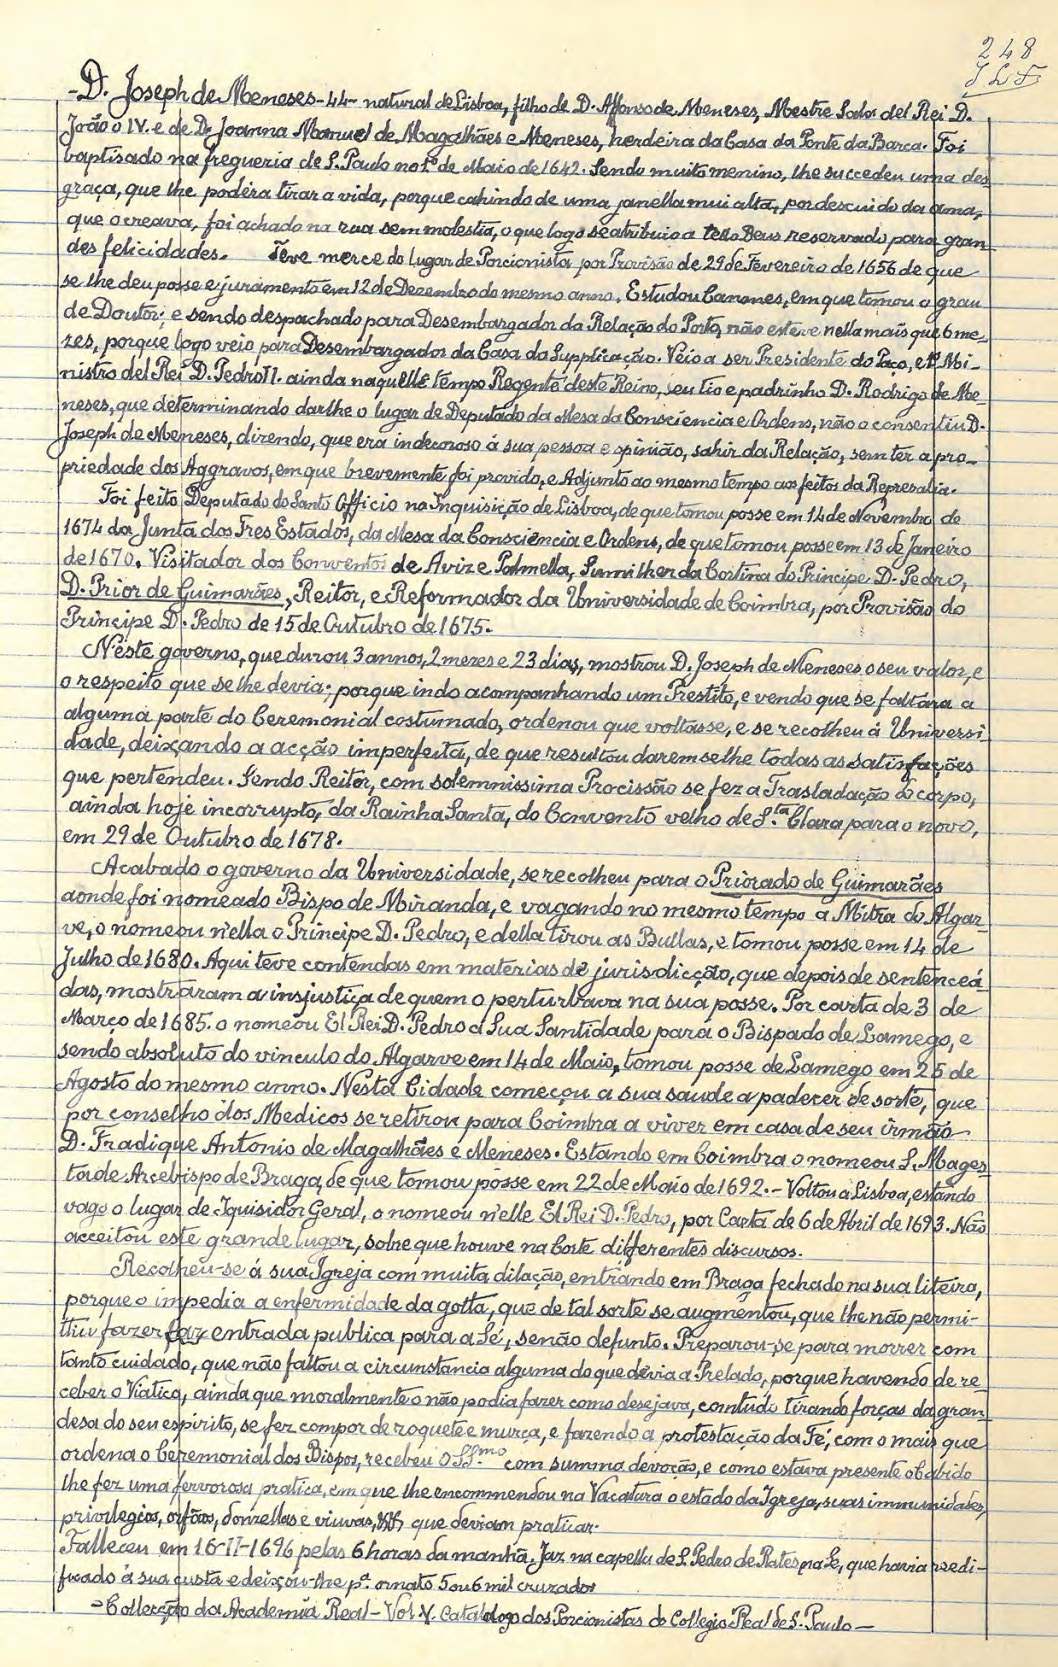 248
- D. Joseph de Meneses - 44 - natural de Lisboa, filho de D. Affonso de Meneses, Mestre Sala del Rei D.
João o IV. e de D. Joanna Manuel de Magalhães e Meneses, herdeira da Casa da Ponte da Barca. Foi
baptisado na freguezia de S. Paulo no 1º de Maio de 1642. Sendo muito menino, lhe succedeu uma des
graça, que lhe podéra tirar a vida, porque cahindo de uma janella mui alta, por descuido da ama,
que o creava, foi achado na rua sem molestia, o que logo se atribuio a tello Deus reservado para gran
des felicidades. Teve merce do lugar de Porcionista por Provisão de 29 de Fevereiro de 1656 de que
se lhe deu posse e juramento em 12 de Dezembro do mesmo anno. Estudou Canones, em que tomou o grau
de Doutor; e sendo despachado para Desembargador da Relação do Porto, não esteve nella mais que 6 me-
zes, porque logo veio para Desembargados da Casa da Supplicação. Veio a ser Presidente do Paço, e 1º Mi-
nistro del Rei D. Pedro II. ainda naquelle tempo Regente deste Reino, seu tio e padrinho D. Rodrigo de Me-
neses, que determinando darlhe o lugar de Deputado da Mesa da Consciencia e Ordens, não o consentiu D.
Joseph de Meneses, dizendo, que era indecoroso á sua pessoa e opinião, sahir da Relação, sem ter a pro-
priedade dos Aggravos, em que brevemente foi provido, e Adjunto ao mesmo tempo aos feitos da Represalia.
Foi feito Deputado do Santo Officio na Inquisição de Lisboa, de que tomou posse em 14 de Novembro de
1674 da Junta dos Tres Estados, da Mesa da Consciencia e Ordens, de que tomou posse em 13 de Janeiro
de 1670. Visitador dos Conventos de Aviz e Palmella, Sumilher da Cortina do Principe D. Pedro,
D. Prior de Guimarães, Reitor, e Reformador da Universidade de Coimbra, por Provisão do
Principe D. Pedro de 15 de Outubro de 1675.
Neste governo, que durou 3 annos, 2 mezes e 23 dias, mostrou D. Joseph de Meneses o seu valor, e
o respeito que se lhe devia; porque indo acompanhando um Prestito, e vendo que se faltára a
alguma parte do Ceremonial costumado, ordenou que voltasse, e se recolheu á Universi-
dade, deixando a acção imperfeita, de que resultou daremselhe todas as satisfações
que pertendeu. Sendo Reitor, com solemnissima Procissão se fez a Trasladação do corpo,
ainda hoje incorrupto, da Rainha Santa, do Convento velho de S.ta Clara para o novo,
em 29 de Outubro de 1678.
Acabado o governo da Universidade, se recolheu para o Priorado de Guimarães
aonde foi nomeado Bispo de Miranda, e vagando no mesmo tempo a Mitra do Algar-
ve, o nomeou n'ella o Principe D. Pedro, e della tirou as Bullas, e tomou posse em 14 de
Julho de 1680. Aqui teve contendas em materias de jurisdicção, que depois de sentenceá
das, mostraram a insjustiça de quem o perturbava na sua posse. Por carta de 3 de
Março de 1685. o nomeou El Rei D. Pedro a Sua Santidade para o Bispado de Lamego, e
sendo absoluto do vinculo do Algarve em 14 de Maio, tomou posse de Lamego em 25 de
Agosto do mesmo anno. Nesta Cidade começou a sua saude a padecer de sorte, que
por conselho dos Medicos se retirou para Coimbra a viver em casa de seu irmão
D. Fradique Antonio de Magalhães e Meneses. Estando em Coimbra o nomeou S. Mages
tade Arcebispo de Braga, de que tomou posse em 22 de Maio de 1692. - Voltou a Lisboa, estando
vago o lugar de Iquisidor Geral, o nomeou n'elle El Rei D. Pedro, por Carta de 6 de Abril de 1693. Não
acceitou este grande lugar, sobre que houve na Corte differentes discursos.
Recolheu-se á sua Igreja com muita dilação, entrando em Braga fechado na sua liteira,
porque o impedia a enfermidade da gotta, que de tal sorte se augmentou, que lhe não permi-
thiu fazer faz entrada publica para a Sé, senão defunto. Preparou-se para morrer com
tanto cuidado, que não faltou a circunstancia alguma do que devia a Prelado, porque havendo de re-
ceber o Viatico, ainda que moralmente o não podia fazer como desejava, comtudo tirando forças da gran
desa do seu espirito, se fez compor de roquete e murça, e fazendo a protestação da Fé, com o mais que
ordena o Ceremonial dos Bispos, recebeu o SS.mo com summa devoção, e como estava presente o Cabido
lhe fez uma fervorosa pratica, em que lhe encommendou na Vacatura o estado da Igreja, suas immunidades,
privilegios, orfãos, donzellas e viuvas, que deviam praticar.
Falleceu em 16-II-1696 pelas 6 horas da manhã. Jaz na capella de S. Pedro de Rates na Sé, que havia reedi-
ficado á sua custa e deixou-lhe pª. ornato 5 ou 6 mil cruzados
- Collecção da Academia Real - Vol. V. Catalogo dos Porcionistas do Collegio Real de S. Paulo -